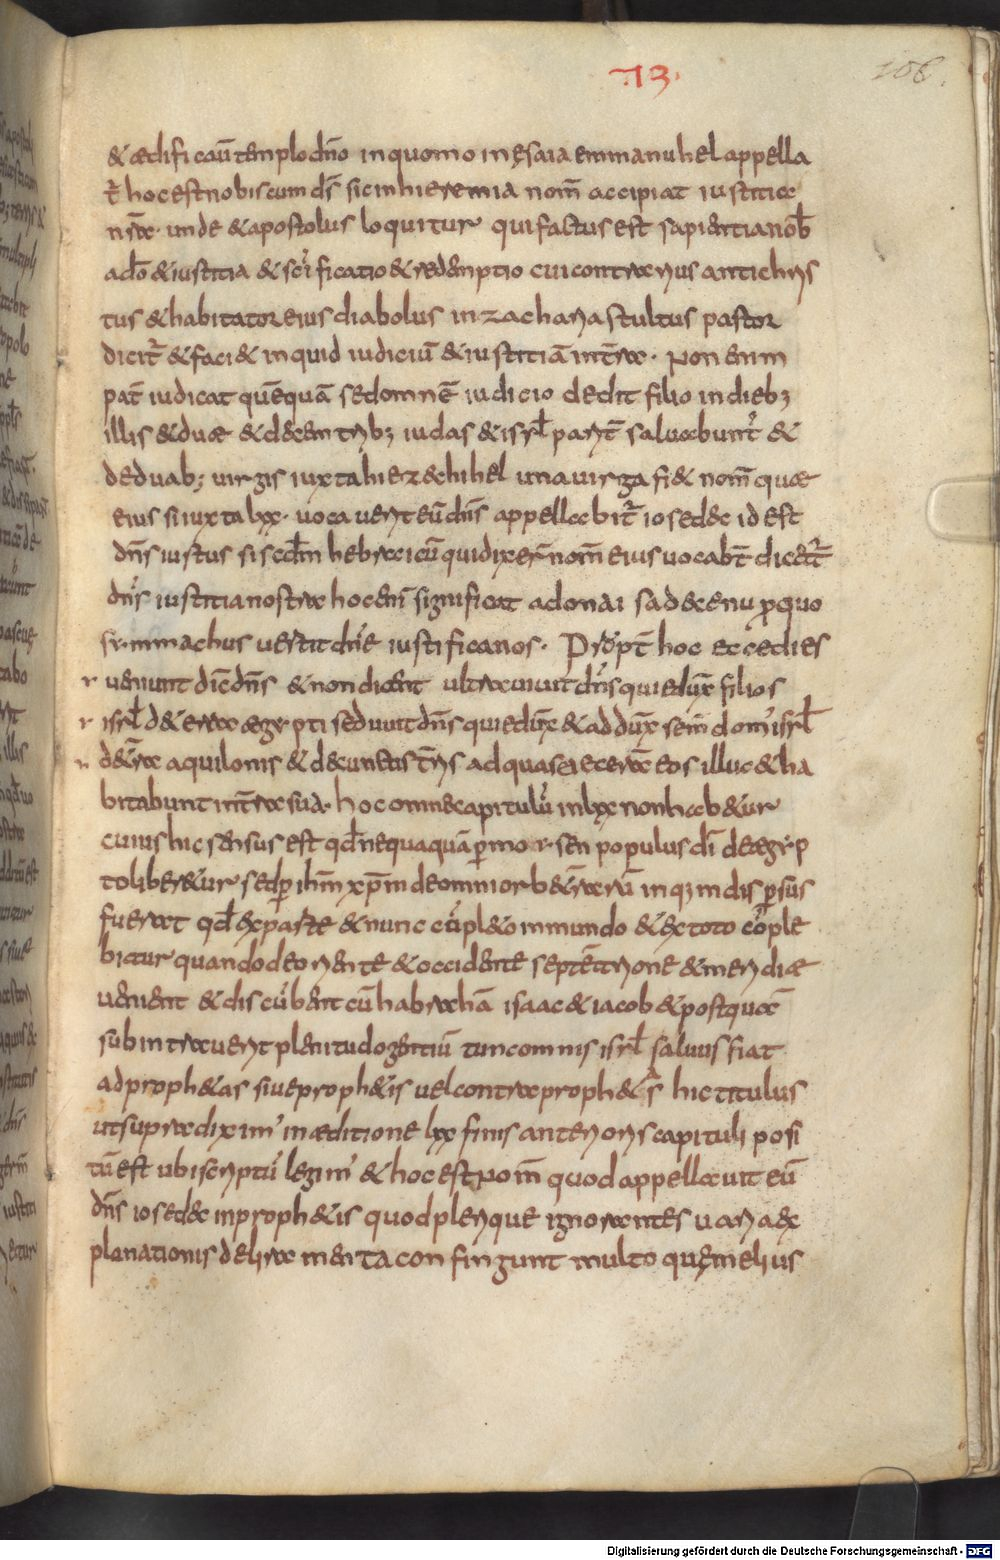 713.
106.
& ædificaū templo dn̄o inquomo in ęsaia emmanuhel appella
t̄ hoc est nobiscum ds̄ sic in hieremia nom̄ accipiat iustitiae
nr̄ae. unde & apostolus loquitur qui factus est sapientia nob̄
a do̅ & iustitia & sc̄ificatio & redemptio cui contrarius antichris
tus & habitator eius diabolus in zacharia stultus pastor
dicit̄ & faci& inquid iudiciū & iustitiā in tr̄a. Non enim
pat̄ iudicat quēquā sed omnē iudicio dedit filio in dieb;
illis & duae & decem trib; iudas & isrl̄ parit̄ saluabunt̄ &
de duab; uirgis iuxta hiezechihel una uirga fi& nom̄ quae
eius si iuxta lxx. uocauerit eū dn̄s appellabit̄ iosedec id est
dn̄s iustus si scdm̄ hebraicū qui dixer̄ nom̄ eius uocab̄t dicent̄
dn̄s iustitia nostra hoc enī significat adonai sadecenu ꝓ quo
symmachus uertit dn̄e iustifica nos. Propt̄ hoc ecce dies
r ueniunt dic̄ dn̄s & non dicent ultra uiuit dn̄s qui edux̄ filios
r isrl̄ de terra aegypti sed uiuit dn̄s qui edux̄ & addux̄ sem̄ dom' isrl̄
r de tr̄a aquilonis & de cunctis tr̄is ad quas eieceram eos illuc & ha
bitabunt in tr̄a sua. hoc omne capitulū in lxx non hab&ur
cuius hic sensus est qd̄ nequaquā ꝑ moysen populus dī de aegyp
to liber&ur sed ꝑ ihm̄ xp̄m de omni orbe tr̄arū in q; indispersus
fuerat qd̄ ex parte & nunc cōpl&o in mundo & ex toto cōple
bitur quando de oriente & occidente septētrione & meridiae
uenient & discūbent cū habrahā isaac & iacob & postquā
sub intrauerit plenitudo gentiū tunc omnis isrl̄ saluus fiat
ad proph&as siue proph&is uel contra proph&as hic titulus
ut supra dixim' in aeditione lxx finis anterioris capituli posi
tū est ubi scriptū legim' & hoc est nom̄ quod appellauit eū
dn̄s iosedec in proph&is quod plerique ignorantes uaria ex
planationis deliramenta confingunt multo quę melius
Digitalisierung gefördert durch die Deutsche Forschungsgemeinschaft - DFG